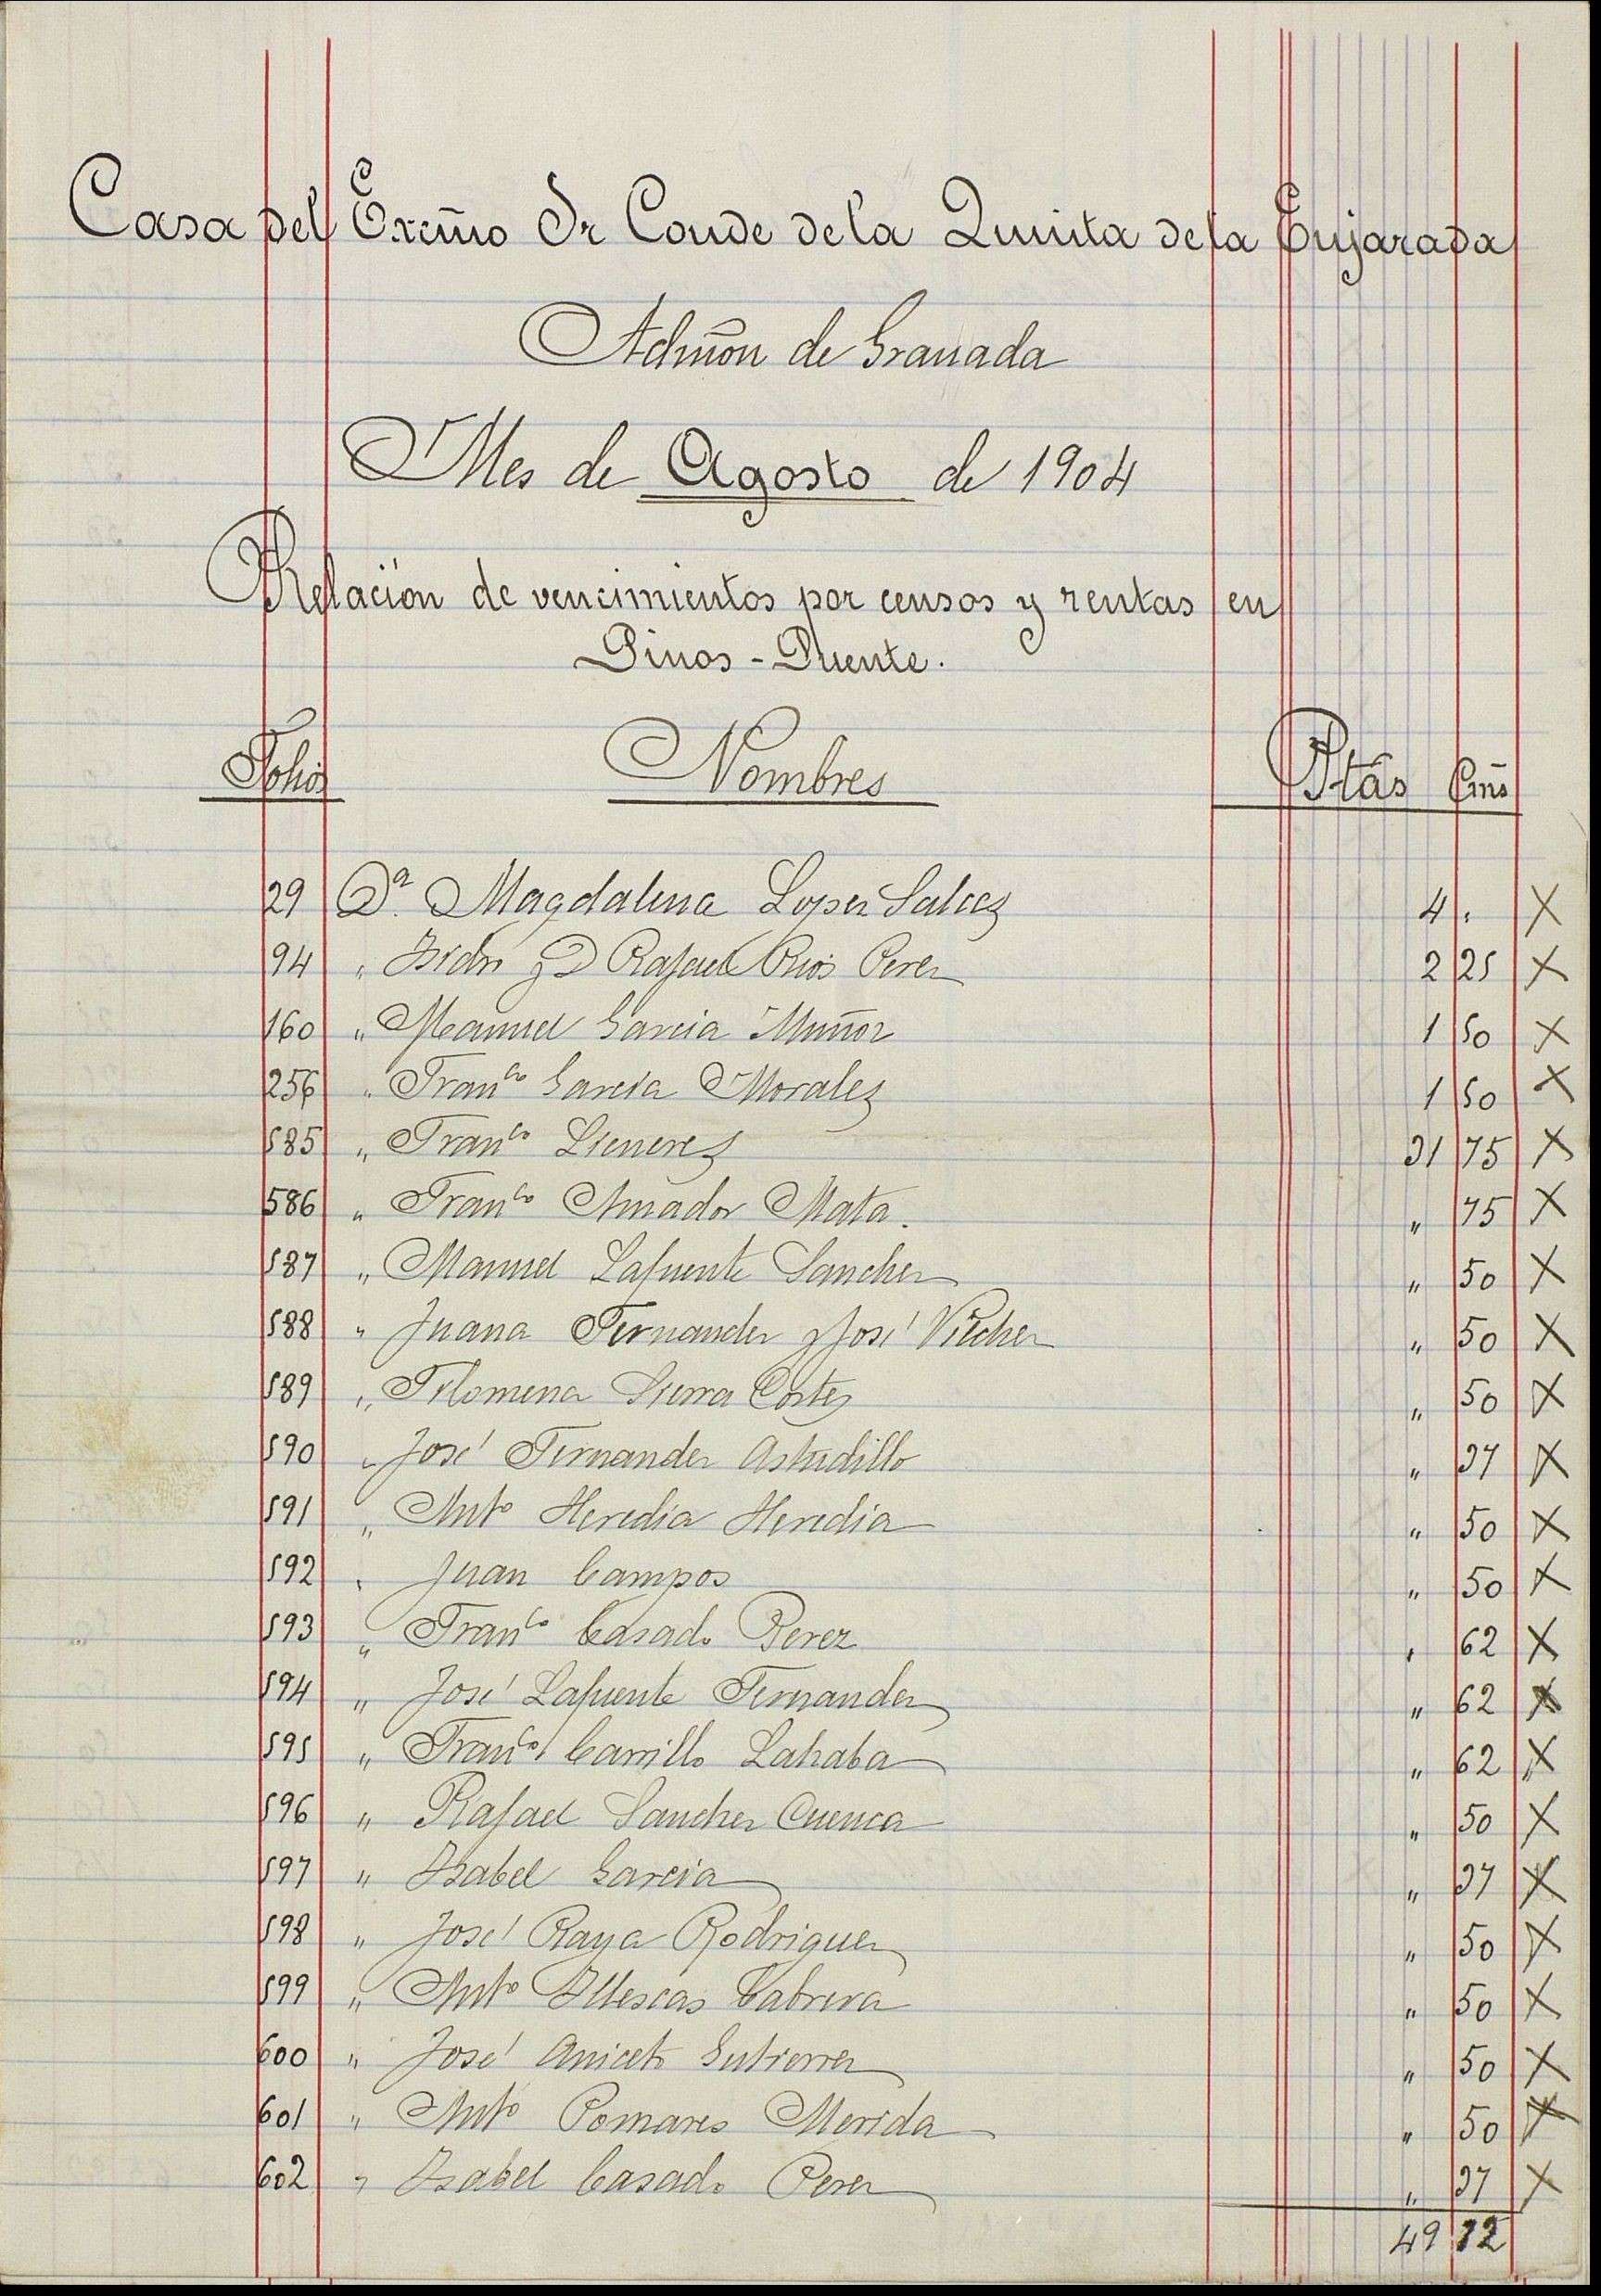 Casa del Excm̃o Sr Conde de la Quinta de la Enjarada
Adm̃on de Granada
Mes de Agosto de 1904
Relación de vencimientos por censos y rentas en
Pinos-Puente.
Folios Nombres Ptas Cm̃s
29 Dª. Magdalena Lopez Salcez 4 " X
94 " Isidro y D Rafael Rios Perez 2 25 X
160 " Manuel Garcia Muñoz 1 50 X
256 " Franco Garcia Morales 1 50 X
585 " Franco 31 75 X
586 " Franco Amador Mata. " 75 X
587 " Manuel Lafuente Sanchez " 50 X
588 " Juana Fernandez y José Vilchez " 50 X
589 " Filomena Sierra Cortes " 50 X
590 " José Fernandez Astudillo " 37 X
591 " Anto Heredia Heredia " 50 X
592 " Juan Campos " 50 X
593 " Franco Casado Perez " 62 X
594 " José Lafuente Fernandez " 62 X
595 " Franco Carrillo " 62 X
596 " Rafael Sanchez Cuenca " 50 X
597 " Isabel Garcia " 37 X
598 " José Raya Rodriguez " 50 X
599 " Anto Illescas Cabrera " 50 X
600 " José Aniceto Gutierrez " 50 X
601 " Anto Pomares Merida " 50 X
602 " Isabel Casado Perez " 37 X
49 12